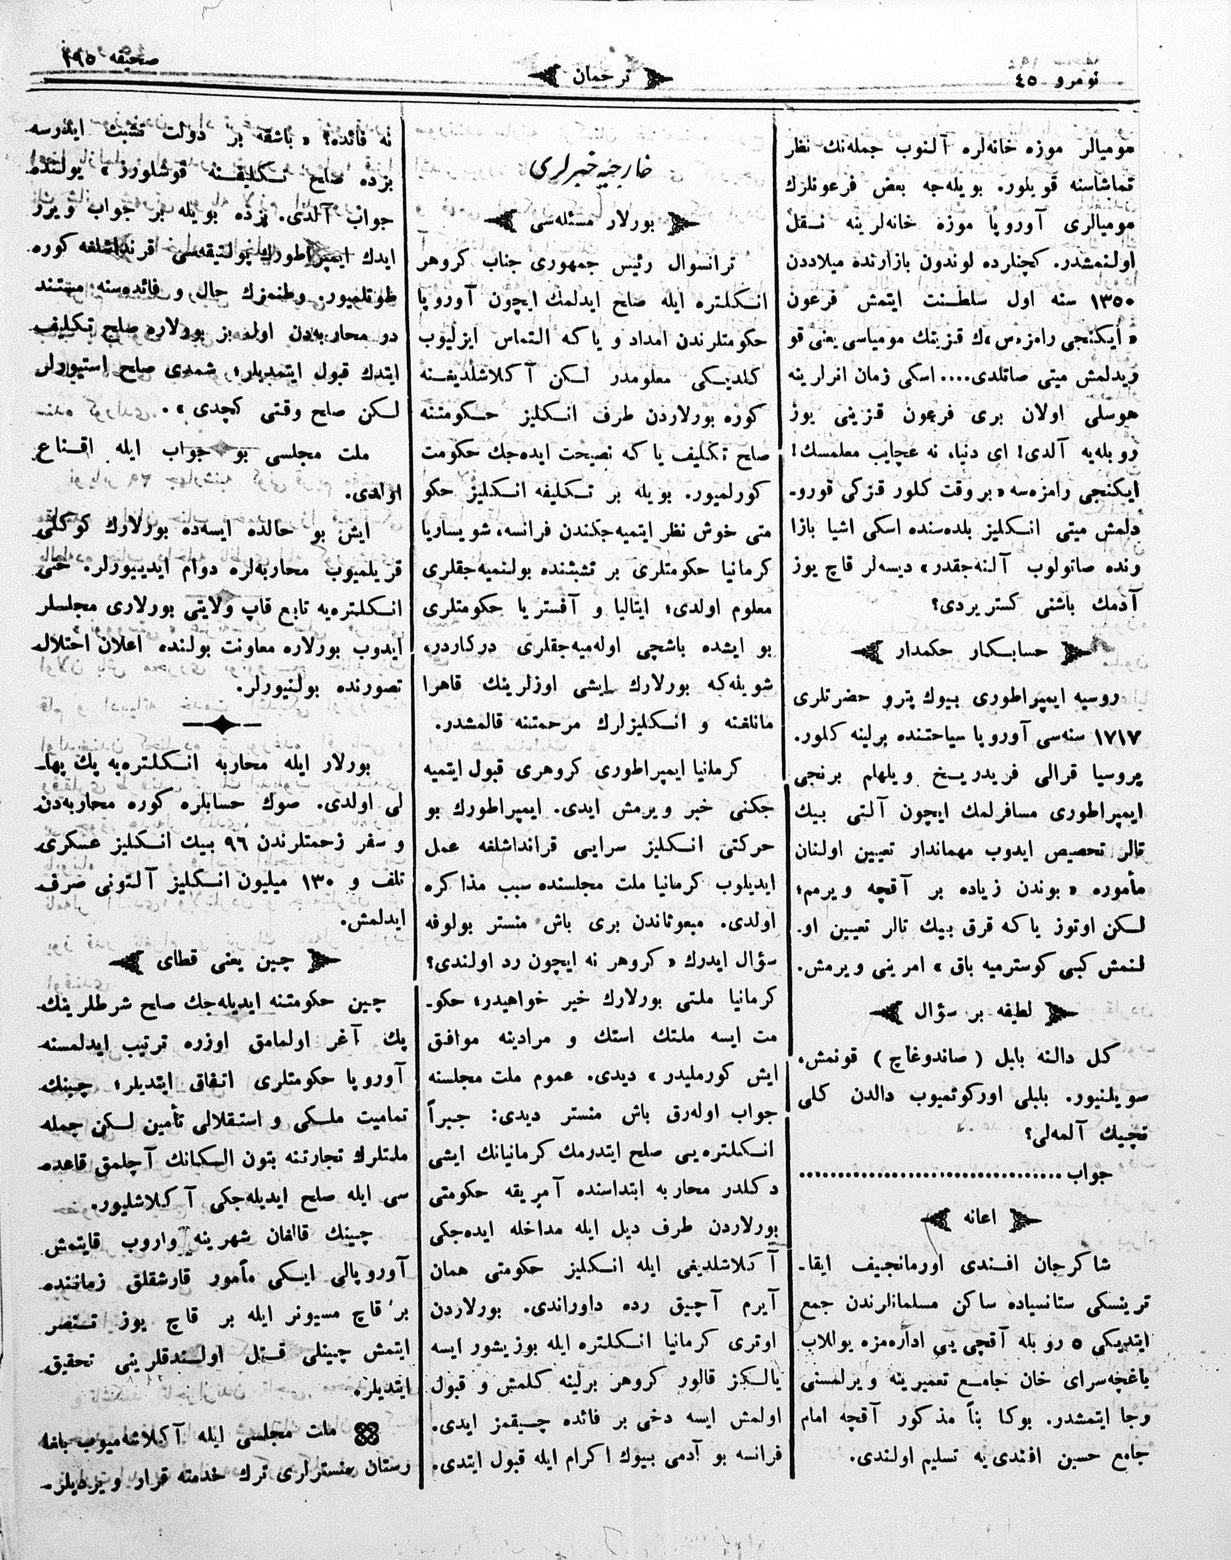 نومرو ٤٥
ترجمان
صحیفه ١٩٥
مومیالر موزه خانه‌لره آلنوب جمله‌نك نظر
تماشاسنه قویلور. بویله‌جه بعض فرعونلرك
مومیالری آوروپا موزه خانه‌لرینه نقل
اولنمشدر. كچنلرده لوندون بازارنده میلاددن
١٣٥٠ سنه اول سلطنت ایتمش فرعون
« ایكنجی رامزه‌س »ك قزینك مومیاسی یعنی قو
ریدلمش میتی صاتلدی.... اسكی زمان اثرلرینه
هوسلی اولان بری فرعون قزینی یوز
روبله‌یه آلدی! ای دنیا، نه عجایب معلمسك!
ایكنجی رامزه‌سه « بر وقت كلور قزكی قورو-
دلمش میتی انكلیز بلده‌سنده اسكی اشیا بازا
رنده صاتولوب آلنه‌جقدر » دیسه‌لر قاچ یوز
آدمك باشنی كستریردی؟
حسابكار حكمدار
روسیه ایمپراطوری بیوك پترو حضرتلری
١٧١٧ سنه‌سی آوروپا سیاحتنده برلینه كلور.
پروسیا قرالی فریدریخ ویلهلم برنجی
ایمپراطوری مسافرلمك ایچون آلتی بیك
تالر تخصیص ایدوب مهماندار تعیین اولنان
مأموره « بوندن زیاده بر آقچه ویرمم؛
لكن اوتوز یا كه قرق بیك تالر تعیین او-
لنمش كبی كوسترمیه باق » امرینی ویرمش.
لطیفه بر سؤال
كل دالنه بابل ( صاندوغاچ ) قونمش،
سویلنیور. بلبلی اوركوتمیوب دالدن كلی
نچیك آلمه‌لی؟
جواب .................................
اعانه
شاكرجان افندی اورمانجیف ایقا-
ترینسكی ستانسیاده ساكن مسلمانلرندن جمع
ایتدیكی ٥ روبله آقچی یی اداره‌مزه یوللاب
باغچه‌سرای خان جامع تعمیرینه ویرلمسنی
رجا ایتمشدر. بوكا بنأ مذكور آقچه امام
جامع حسین افندی یه تسلیم اولندی.
خارجیه خبرلری
بورلار مسئله‌سی
ترانسوال رئیس جمهوری جناب كروهر
انكلتره ایله صلح ایدلمك ایچون آوروپا
حكومتلرندن امداد و یا كه التماس ایزلیوب
كلدیكی معلومدر لكن آكلاشلدیغنه
كوره بورلاردن طرف انكلیز حكومتنه
صلح تكلیف یا كه نصیحت ایده‌جك حكومت
كورلمیور. بویله بر تكلیفه انكلیز حكو
متی خوش نظر ایتمیه‌جكندن فرانسه، شویساریا
كرمانیا حكومتلری بر تشبثنده بولنمیه‌جقلری
معلوم اولدی؛ ایتالیا و آفستریا حكومتلری
بو ایشده باشچی اوله‌میه‌جقلری دركاردر،
شویله‌كه بورلارك ایشی اوزلرینك قاهرا
مانلغنه و انكلیزلرك مرحمتنه قالمشدر.
كرمانیا ایمپراطوری كروهری قبول ایتمیه
جكنی خبر ویرمش ایدی. ایمپراطورك بو
حركتی انكلیز سرایی قرانداشلغه عمل
ایدیلوب كرمانیا ملت مجلسنده سبب مذاكره
اولدی. مبعوثاندن بری باش منستر بولوفه
سؤال ایدرك « كروهر نه ایچون رد اولندی؟
كرمانیا ملتی بورلارك خیر خواهیدر؛ حكو-
مت ایسه ملتك استك و مرادینه موافق
ایش كورملیدر » دیدی. عموم ملت مجلسنه
جواب اوله‌رق باش منستر دیدی: جبراً
انكلتره‌یی صلح ایتدرمك كرمانیانك ایشی
دكلدر محاربه ابتداسنده آمریقه حكومتی
بورلاردن طرف دیل ایله مداخله ایده‌جكی
آكلاشلدیغی ایله انكلیز حكومتی همان
آیرم آچیق رده داوراندی. بورلاردن
اوتری كرمانیا انكلتره ایله بوزیشور ایسه
یالكز قالور كروهر برلینه كلمش و قبول
اولمش ایسه دخی بر فائده چیقمز ایدی.
فرانسه بو آدمی بیوك اكرام ایله قبول ایتدی.
نه فائده؟ « باشقه بر دولت تشبث ایدرسه
بزده صلح تكلیفنه قوشلورز » یولنده
جواب آلدی. بزده بویله بر جواب ویرر
ایدك ایمپراطورك پولتیقه‌سی قرنداشلغه كوره
طوتلمیور. وطنمزك حال و فائده‌سنه مبتند
در محاربه‌دن اول بز بورلاره صلح تكلیف
ایتدك قبول ایتمدیلر؛ شمدی صلح استیورلر
لكن صلح وقتی كچدی ».
ملت مجلسی بو جواب ایله اقناع
اولدی.
ایش بو حالده ایسه‌ده بورلارك كوكلی
قریلمیوب محاربه‌لره دوام ایدییورلر. حتی
انكلتره‌یه تابع قاپ ولایتی بورلاری مجلسلر
ایدوب بورلاره معاونت یولنده اعلان اختلال
تصورنده بولنیورلر.
بورلار ایله محاربه انكلتره‌یه پك پها-
لی اولدی. صوك حسابلره كوره محاربه‌دن
و سفر زحمتلرندن ٩٦ بیك انكلیز عسكری
تلف و ١٣٠ میلیون انكلیز آلتونی صرف
ایدلمش.
چین یعنی قطای
چین حكومتنه ایدیله‌جك صلح شرطلرینك
پك آغر اولمامق اوزره ترتیب ایدلمسنه
آوروپا حكومتلری اتفاق ایتدیلر؛ چینك
تمامیت ملكی و استقلالی تأمین لكن جمله
ملتلرك تجارتنه بتون الكانك آچلمق قاعده
سی ایله صلح ایدیله‌جكی آكلاشلیور.
چینك قالغان شهرینه واروب قایتمش
آوروپالی ایكی مأمور قارشقلق زماننده
بر قاچ مسیونر ایله بر قاچ یوز تنصر
ایتمش چینلی قتل اولندقلرینی تحقیق
ایتدیلر.
ملت مجلسی ایله آكلاشه‌میوب بلغا
رستان منسترلری ترك خدمته قرار ویردیلر.